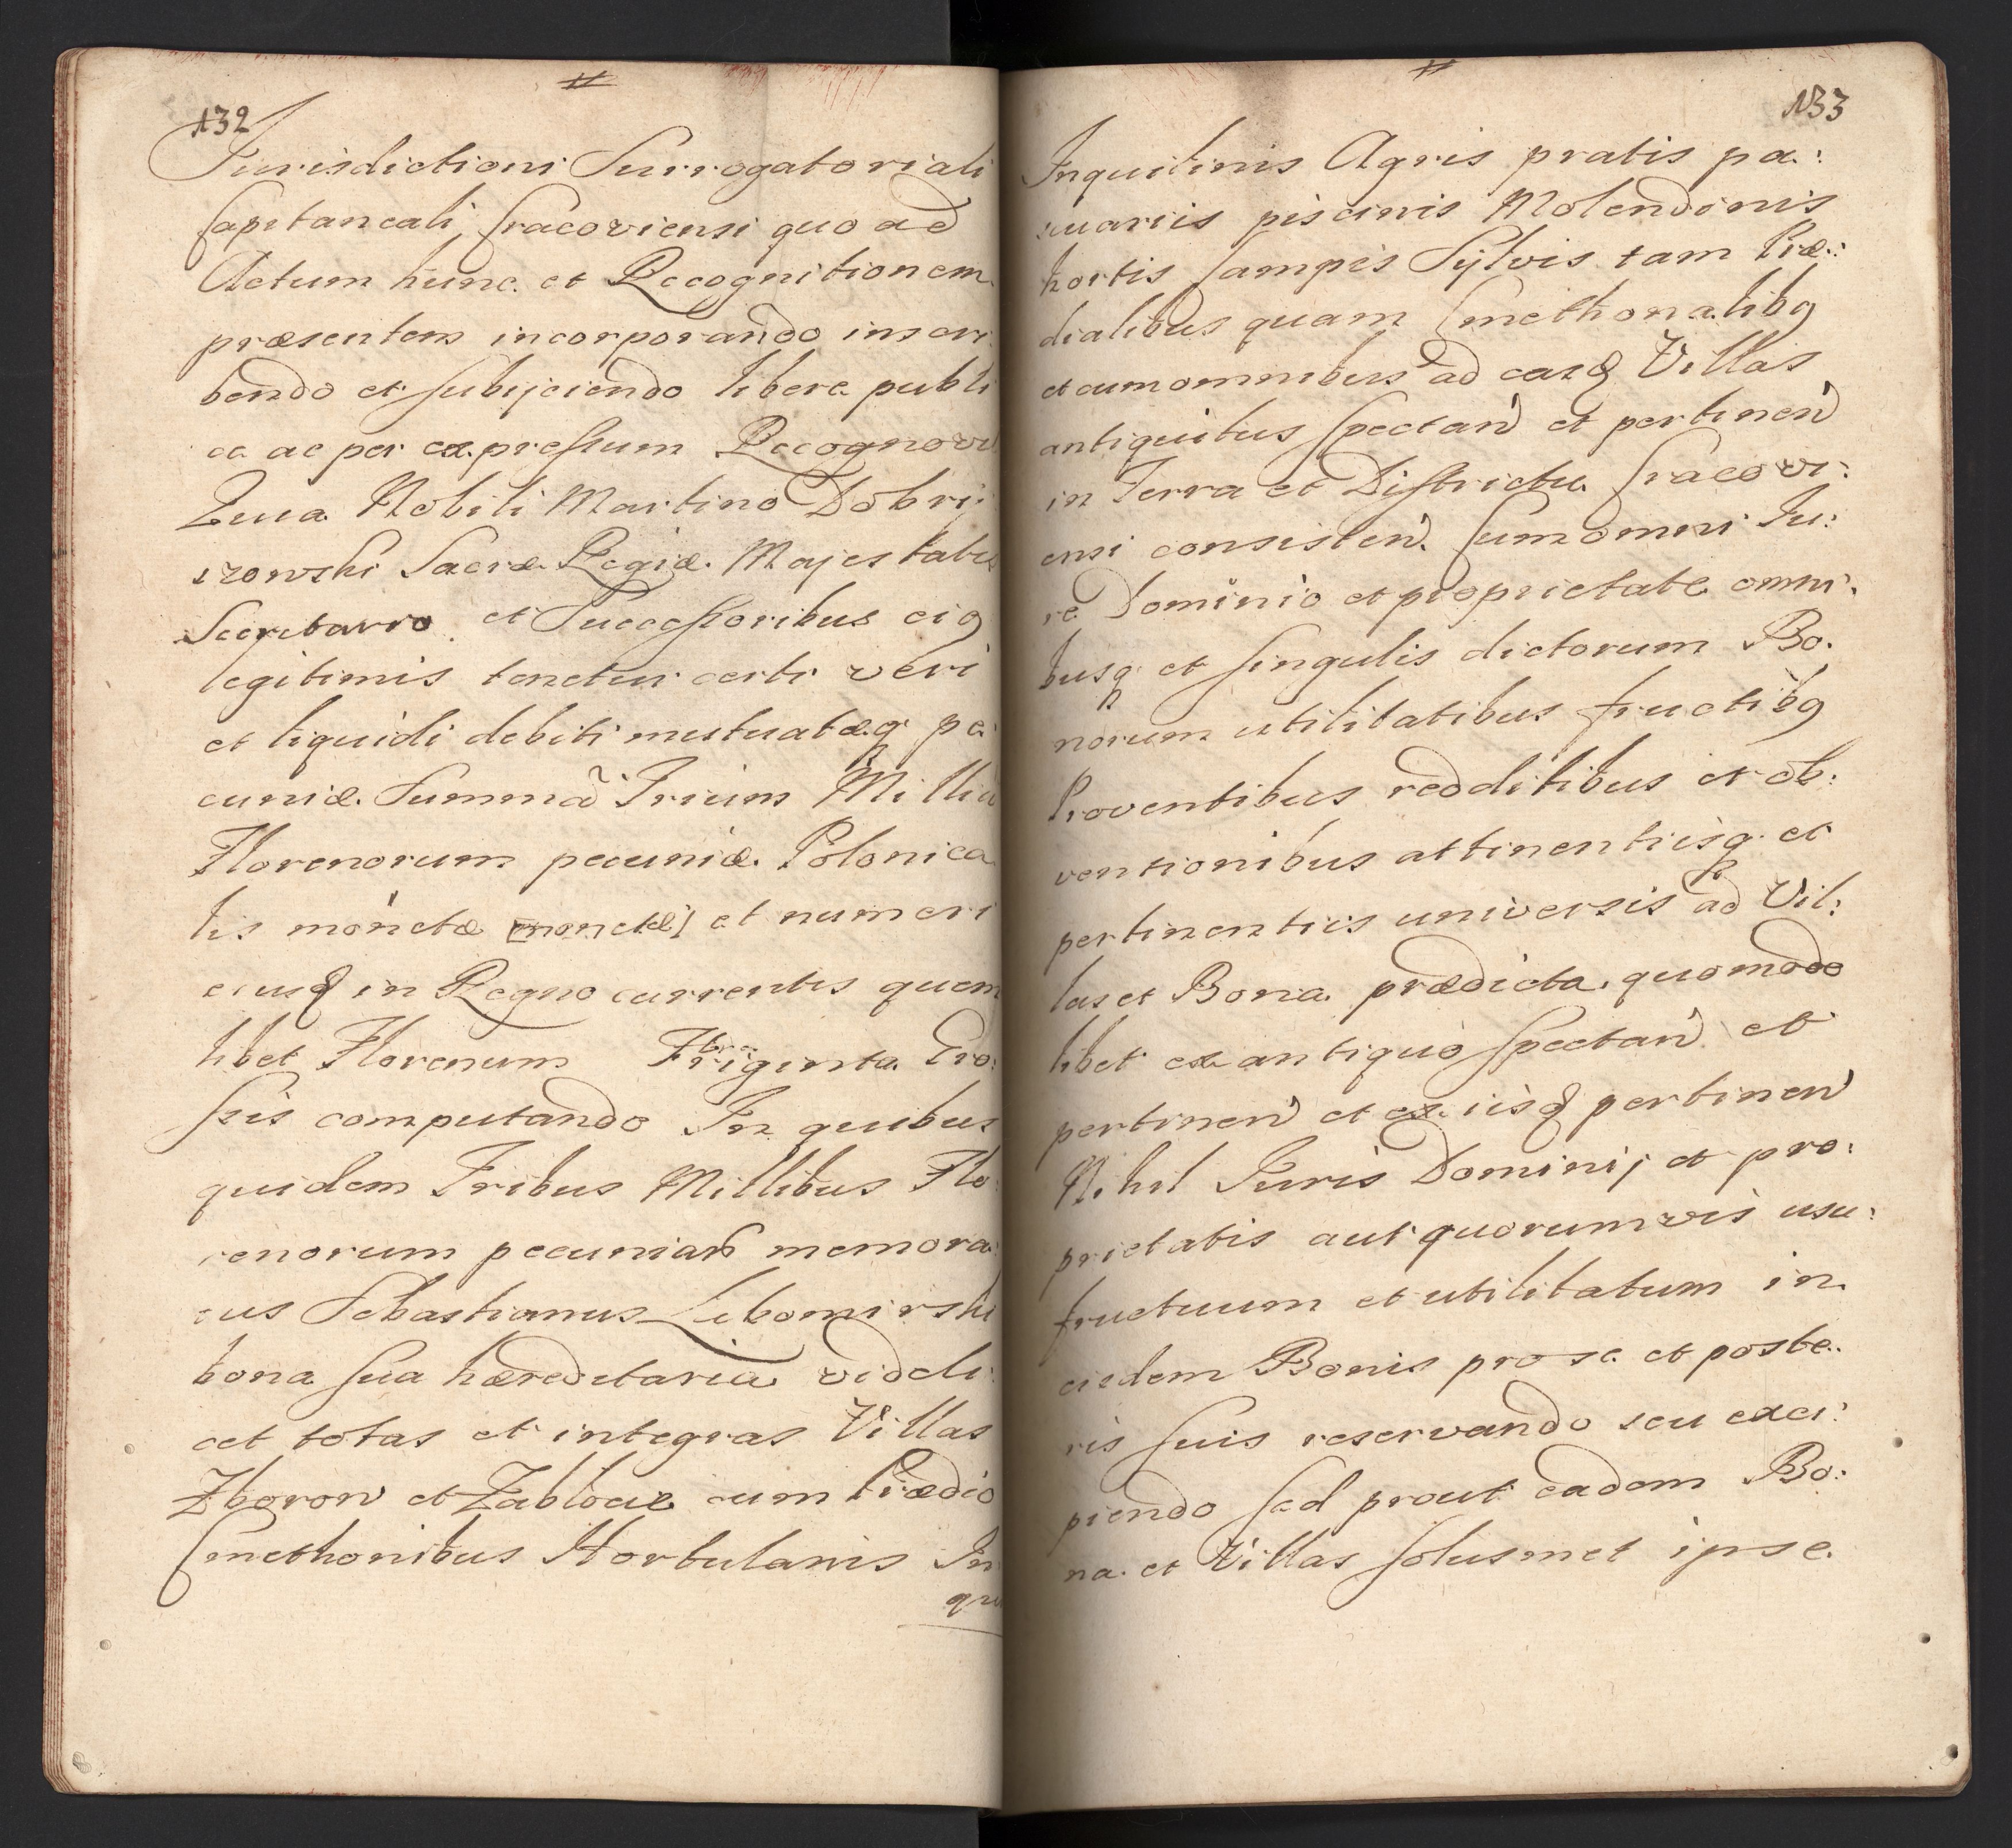 132
Jurisdictioni Surrogatoriali
Capitaneali Cracoviensi quo ad
Actum hunc et Recognitionem
præsentem incorporando inscri
bendo et subijciendo libere publi
ce ac per expressum Recognovi
Quia Nobili Martino Dobrij
szowski Sacræ Regiæ Majestatis
Secretario et Successoribus eig
legitimis tenetur certi veri
et liquidi debiti mutuatæq pe
cuniæ Summã Trium Milliu
Florenorum pecuniæ Polonica
lis monetæ [monetæ] et numeri
eiusd in Regno currentis quem
libet Florenum Triginta Gro:
ssis computando In quibus
quidem Tribus Millibus Flo
renorum pecuniar memora
tus Sebastianus Lubomirski
bona sua hæreditaria videli
cet totas et integras Villas
Zborow et Zablocie cum Prædio
Cmethonibus Hortulanis In
qui
133
Inquilinis Agris pratis pa:
scuariis piscinis Molendinis
hortis Campis Sylvis tam Præ:
dialibus quam Cmethonalibg
et cum omnibus ad easd Villas
antiquitus spectan et pertinen
in Terra et Districtu Cracovi:
ensi consisten Cum omni Ju:
re Dominio et proprietate omni:
busq et singulis dictorum Bo:
norum utilitatibus fructibg
Proventibus redditibus et ob:
ventionibus attinentiisq et
pertinentiis universis ad Vil:
las et Bona prædicta quomodo
libet ex antiquo spectan et
pertinen et ex iisd pertinen
Nihil Juris Dominij et pro:
prietatis aut quorumvis usu:
fructuum et utilitatum in
eisdem Bonis pro se et poste:
ris suis reservando seu exci:
piendo sed prout eadem Bo:
na et Villas solusmet ipse